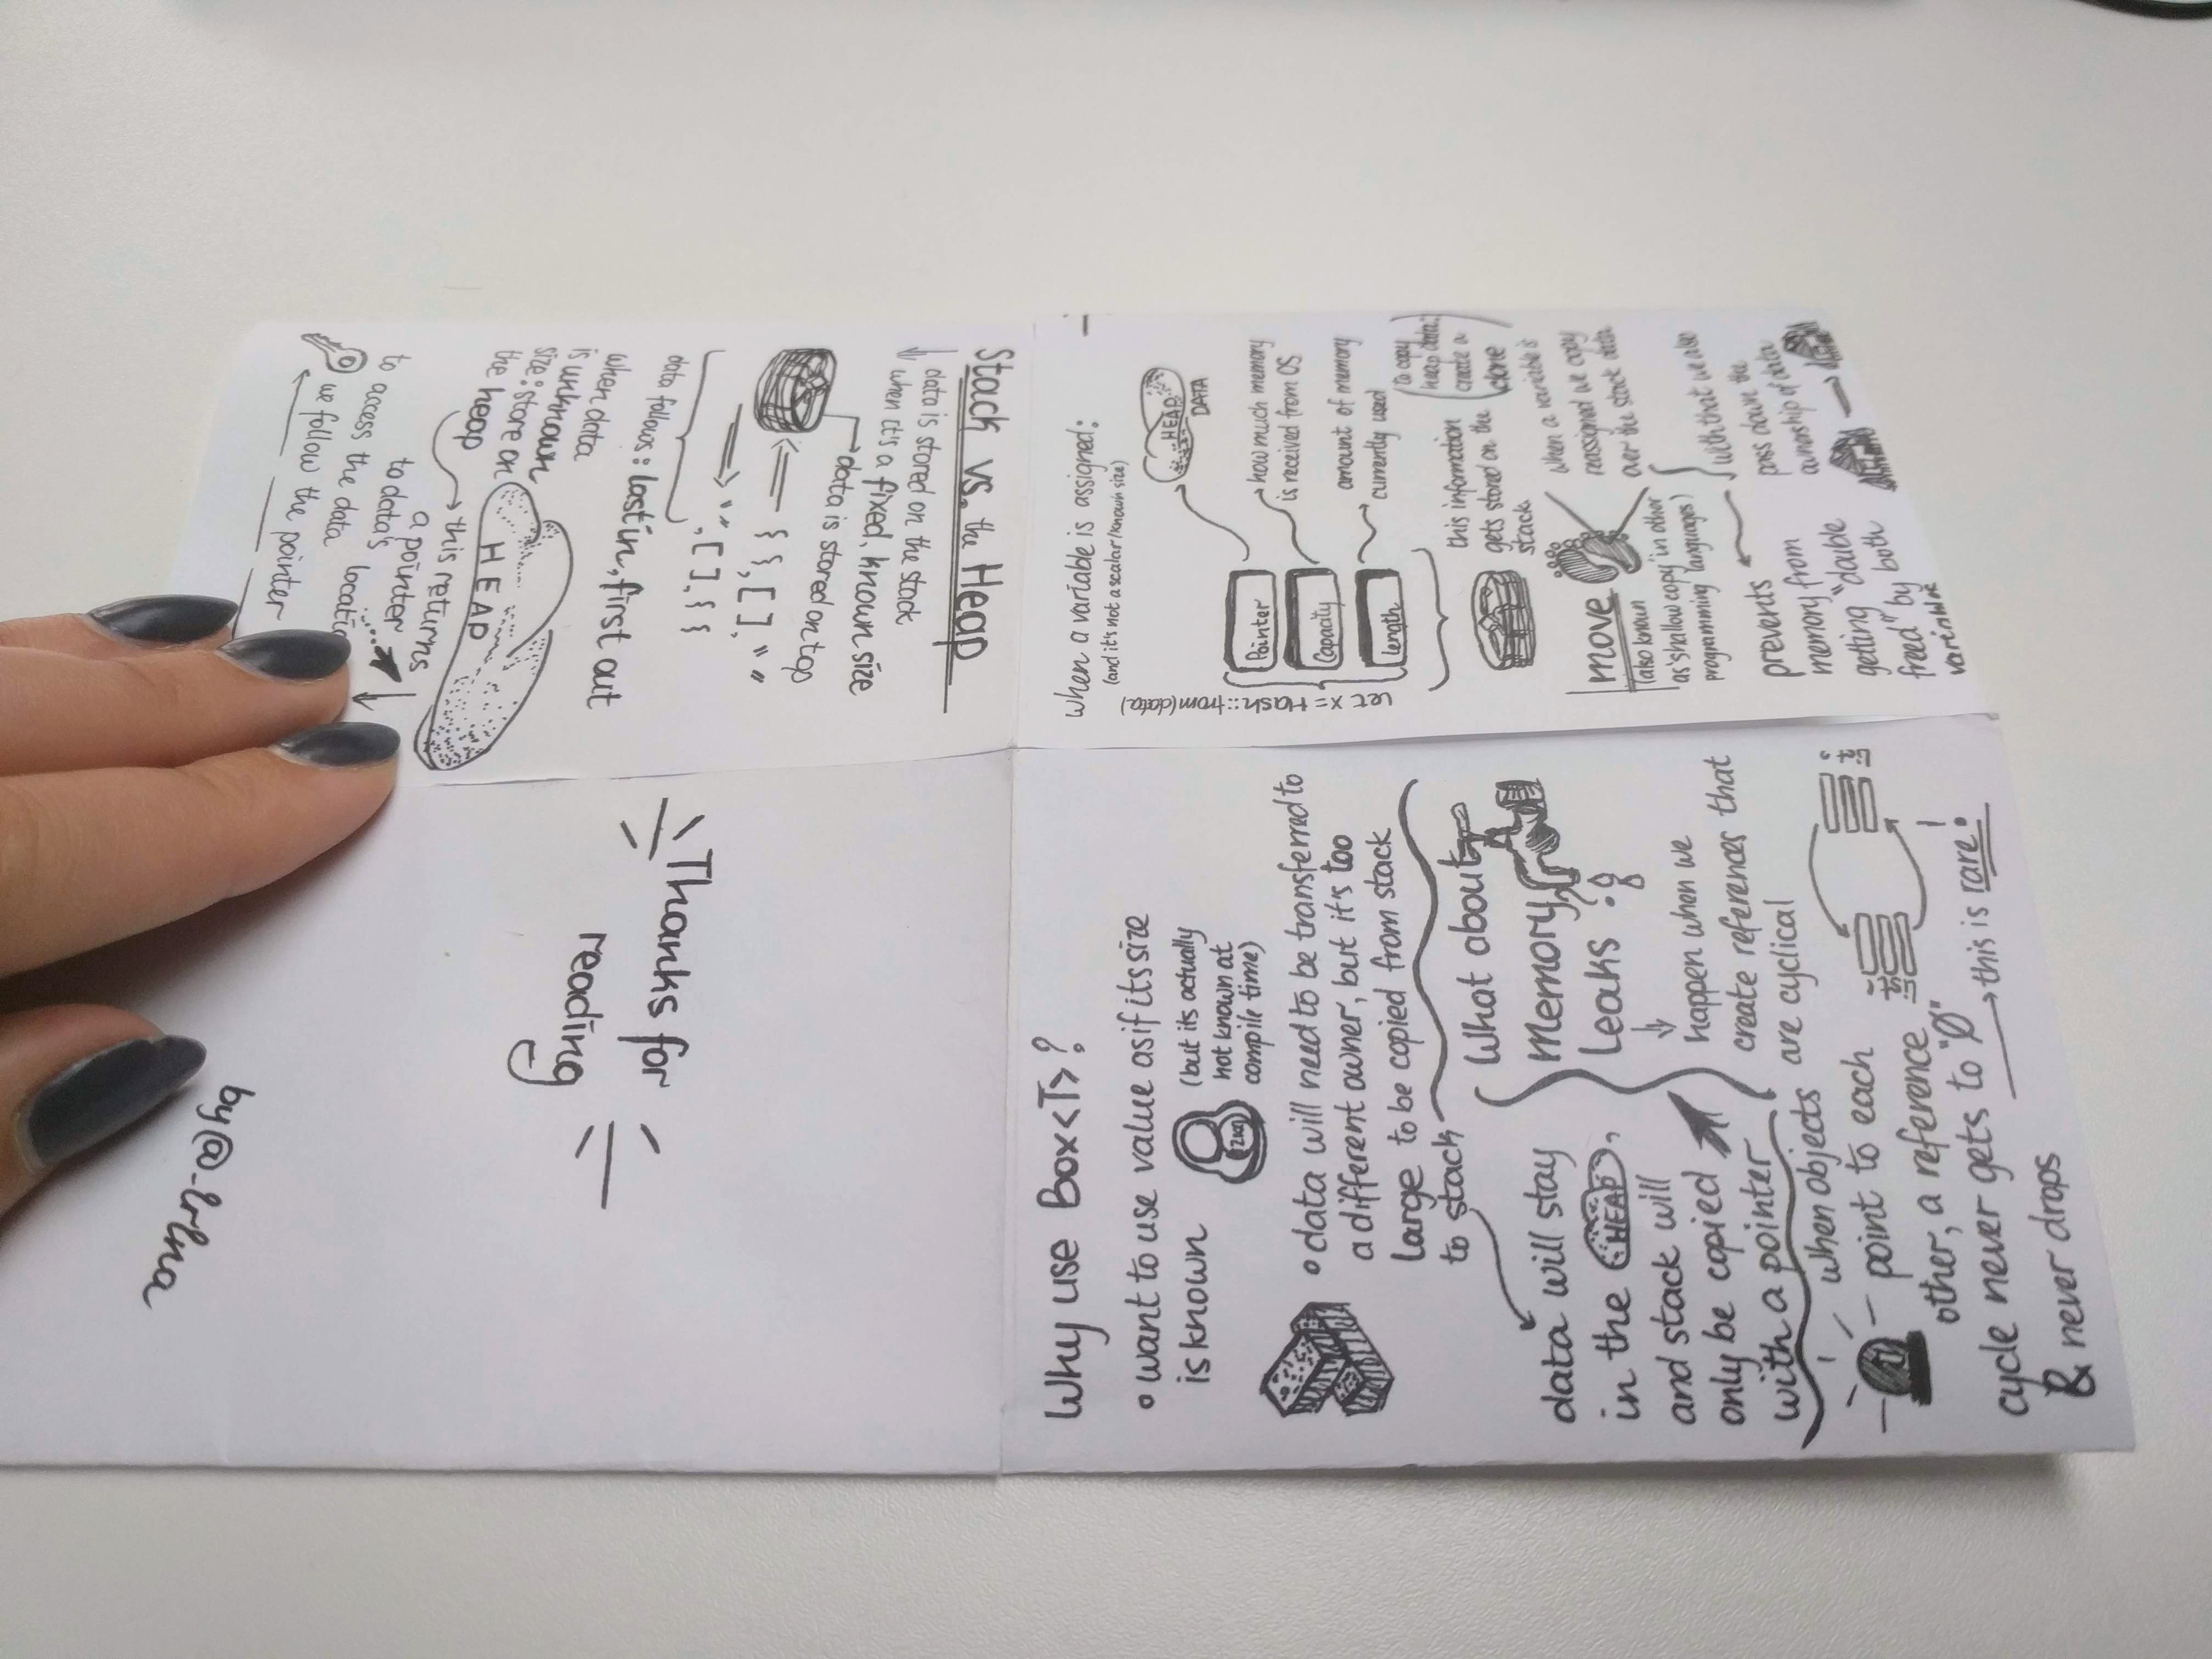 Stack vs. the Heap
data is stored on the stack
when it is a fixed, known size
data is stored on top
{ }, [ ], " "
" ", [ ], { }
data follows: last in, first out
when data
is unknown
size: store on
the heap
this returns
a pointer
to data's locatio
HEAP
to access the data
we follow the pointer
When a variable is assigned:
(and it's not a scalar/known size)
let x = Hash::from(data)
Pointer
HEAP
DATA
Capacity
how much memory
is received from OS
Length
amount of memory
currently used
this information
gets stored on the
stack
(to copy
heap data:
create a
clone
move
(also known
as "shallow copy" in other
programming languages)
when a variable is
reassigned we copy
over the stack data
with that we also
pass down the
ownership of data
prevents
memory from
getting "double
freed" by both
variables
Why use Box<T>?
• want to use value as if its size
is known
(but its actually
not known at
compile time)
• data will need to be transferred to
a different owner, but it's too
large to be copied from stack
to stack
data will stay
in the HEAP,
and stack will
only be copied
with a pointer
What about
Memory
Leaks?
happen when we
create references that
are cyclical
when objects
point to each
other, a reference
cycle never gets to "0"
& never drops
this is rare!
Thanks for
reading
by @_lrlna